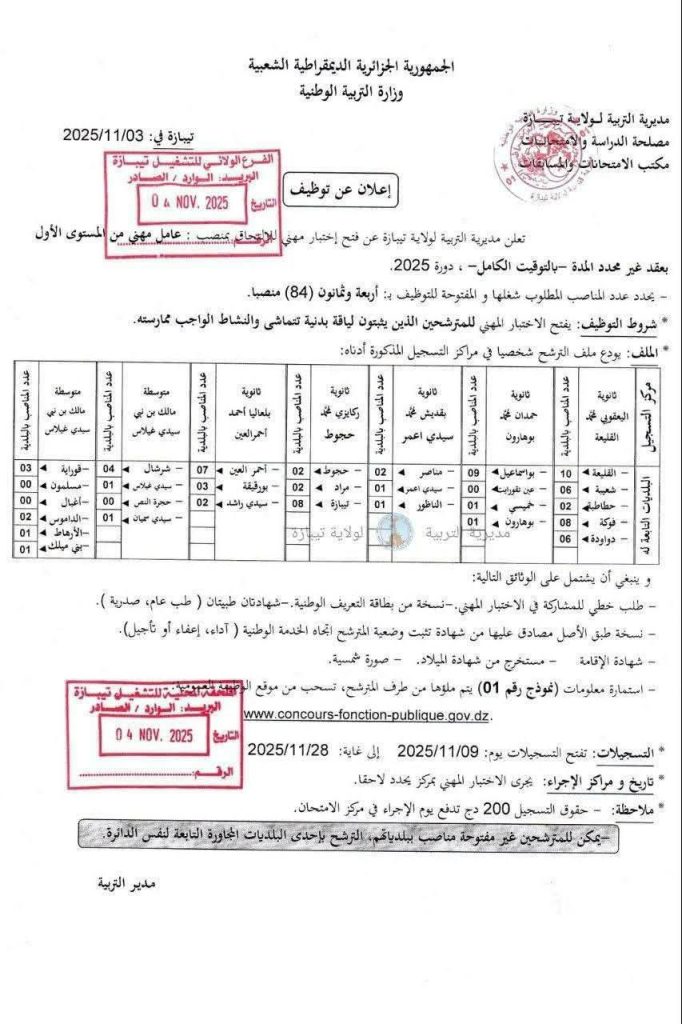 الجمهورية الجزائرية الديمقراطية الشعبية
وزارة التربية الوطنية
مديرية التربية لـولايـة تيبـــازة
مصلحة الدراسة والامتحانات
مكتب الامتحانات والمسابقات
تيبازة في: 2025/11/03
الفرع الولائي للتشغيل تيبازة
البريد: الوارد / الصادر
التاريخ 04 NOV. 2025
الرقم:
إعلان عن توظيف
تعلن مديرية التربية لولاية تيبازة عن فتح إختبار مهني للالتحاق بمنصب : عامل مهني من المستوى الأول
بعقد غير محدد المدة –بالتوقيت الكامل- ، دورة 2025.
– يحدد عدد المناصب المطلوب شغلها و المفتوحة للتوظيف بـ: أربعة وثمانون (84) منصبا.
* شروط التوظيف: يفتح الاختبار المهني للمترشحين الذين يثبتون لياقة بدنية تتماشى والنشاط الواجب ممارسته.
* الملف: يودع ملف الترشح شخصيا في مراكز التسجيل المذكورة أدناه:
مركز التسجيل
ثانوية اليعقوبي محمد القليعة
عدد المناصب بالبلدية
ثانوية حمدان محمد بوهارون
عدد المناصب بالبلدية
ثانوية بقديش محمد سيدي اعمر
عدد المناصب بالبلدية
ثانوية ركايزي محمد حجوط
عدد المناصب بالبلدية
ثانوية بلعاليا أحمد أحمرالعين
عدد المناصب بالبلدية
متوسطة مالك بن نبي سيدي غيلاس
عدد المناصب بالبلدية
متوسطة مالك بن نبي سيدي غيلاس
عدد المناصب بالبلدية
البلديات التابعة له
– القليعة 10
– شعيبة 06
– حطاطبة 02
– فوكة 08
– دواودة 06
– بواسماعيل 09
– عين تقورايت 00
– خميستي 01
– بوهارون 01
– مناصر 02
– سيدي اعمر 01
– الناظور 01
– حجوط 02
– مراد 02
– تيبازة 08
– أحمر العين 07
– بورقيقة 03
– سيدي راشد 02
– شرشال 04
– سيدي غيلاس 01
– حجرة النص 00
– سيدي سميان 01
– قوراية 03
– مسلمون 00
– أغبال 00
– الداموس 02
– الأرهاط 01
– بني ميلك 01
مديرية التربية لولاية تيبازة
و ينبغي أن يشتمل على الوثائق التالية:
– طلب خطي للمشاركة في الاختبار المهني.–نسخة من بطاقة التعريف الوطنية.–شهادتان طبيتان ( طب عام، صدرية ).
– نسخة طبق الأصل مصادق عليها من شهادة تثبت وضعية المترشح اتجاه الخدمة الوطنية ( أداء، إعفاء أو تأجيل).
– شهادة الإقامة – مستخرج من شهادة الميلاد. – صورة شمسية.
– استمارة معلومات (نموذج رقم 01) يتم ملؤها من طرف المترشح، تسحب من موقع الوظيفة العمومية:
www.concours-fonction-publique.gov.dz.
الملحقة المحلية للتشغيل تيبازة
البريد: الوارد / الصادر
التاريخ 04 NOV. 2025
الرقم:
* التسجيلات: تفتح التسجيلات يوم: 2025/11/09 إلى غاية: 2025/11/28
* تاريخ و مراكز الإجراء: يجرى الاختبار المهني بمركز يحدد لاحقا.
* ملاحظة: – حقوق التسجيل 200 دج تدفع يوم الإجراء في مركز الامتحان.
–يمكن للمترشحين غير مفتوحة مناصب ببلدياتهم، الترشح بإحدى البلديات المجاورة التابعة لنفس الدائرة.
مدير التربية